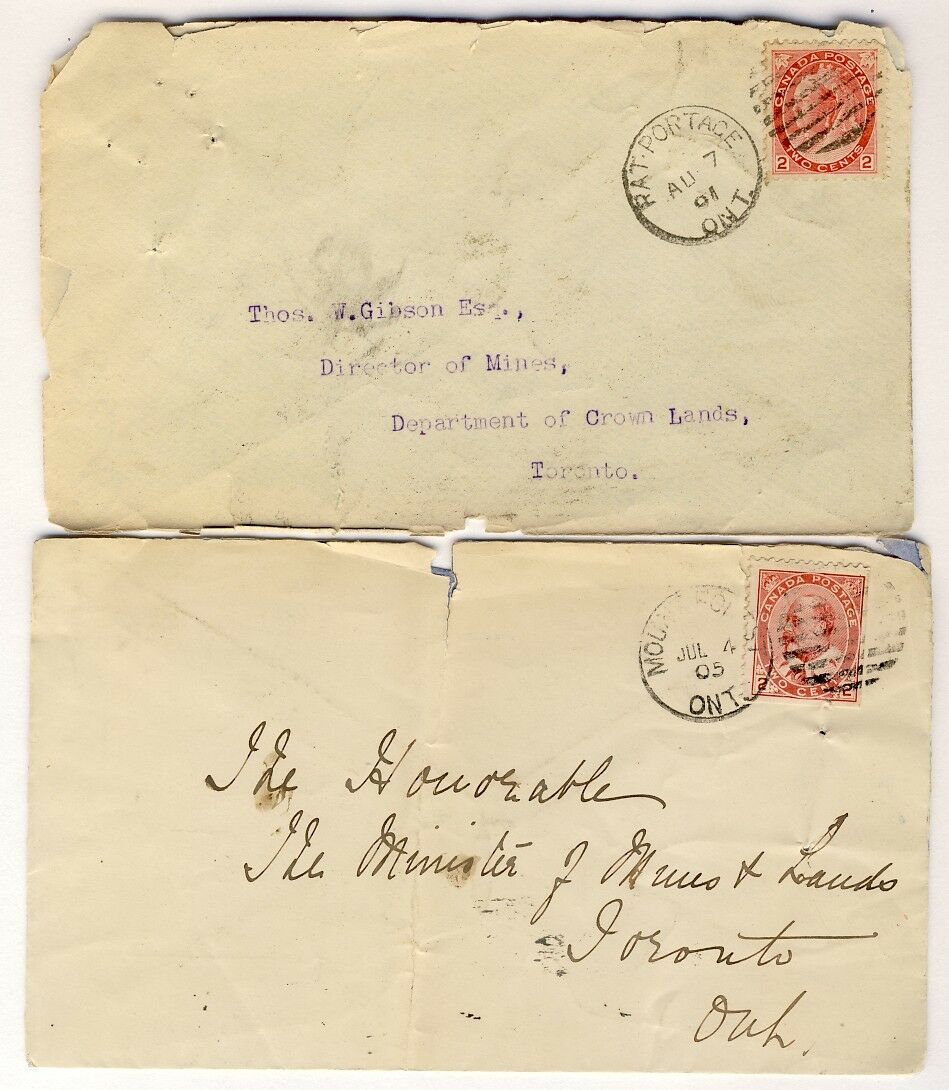 CANADA POSTAGE
2 TWO CENTS 2
RAT PORTAGE
AU 7
01
ONT.
Thos. W.Gibson Esq.,
Director of Mines,
Department of Crown Lands,
Toronto.
CANADA POSTAGE
2 TWO CENTS 2
JUL 4
05
ONT.
The Honorable
The Minister of Mines & Lands
Toronto
Ont.